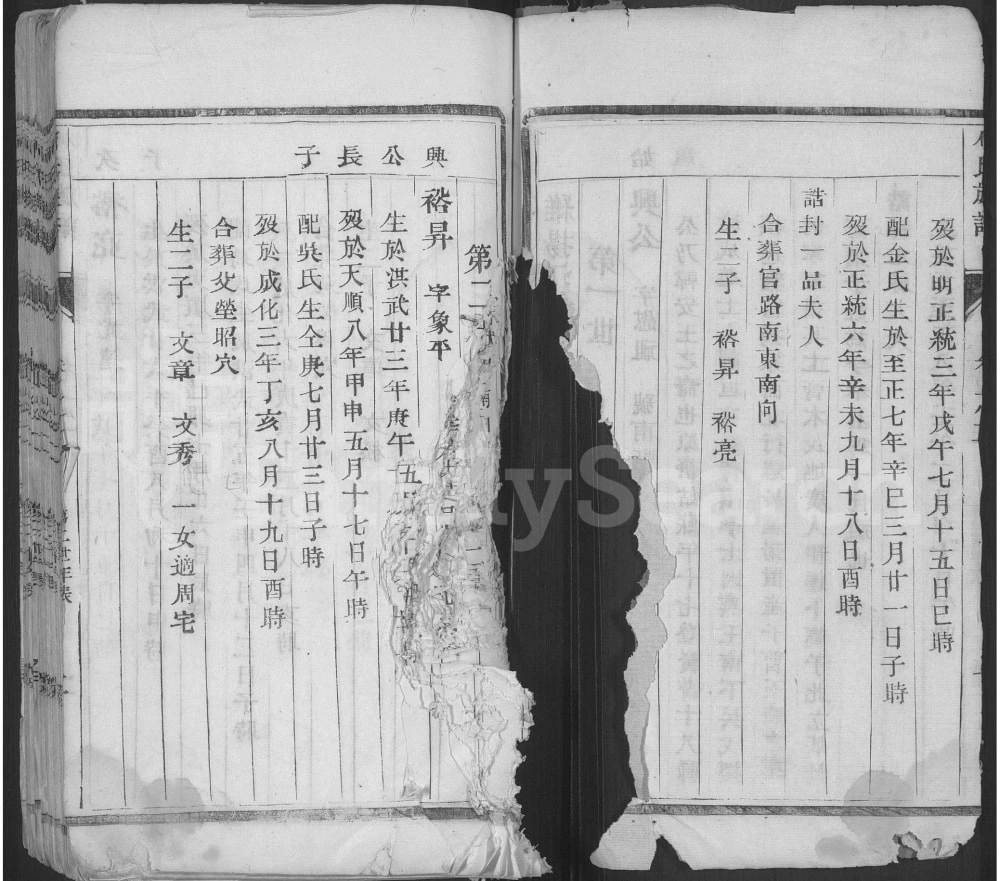 歿於明正統三年戊午七月十五日巳時
配金氏生於至正七年辛巳三月廿一日子時
歿於正統六年辛未九月十八日酉時
誥封一品夫人
合葬官路南東南向
生二子 裕昇 裕亮
第二
興公長子
裕昇 字象平
生於洪武廿三年庚午
歿於天順八年甲申五月十七日午時
配吳氏生仝庚七月廿三日子時
歿於成化三年丁亥八月十九日酉時
合葬父塋昭穴
生二子 文章 文秀 一女適周宅